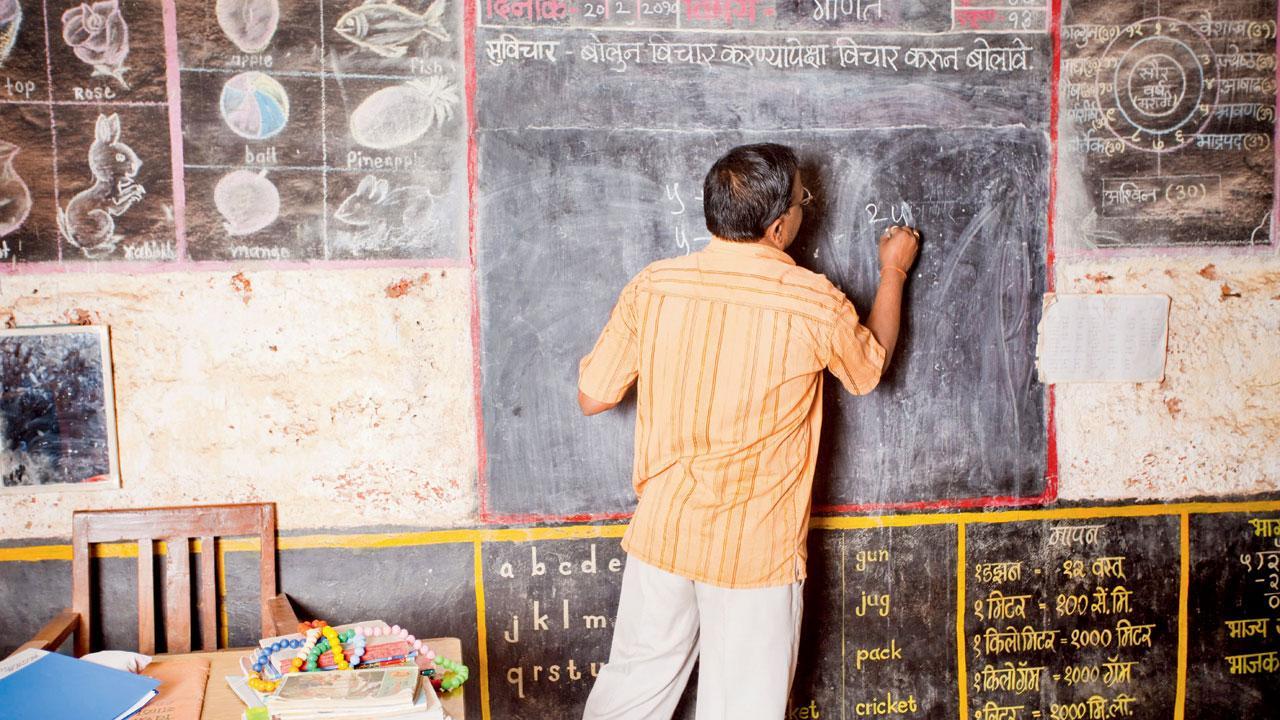 दिनांक- २० 2 २०१०
विषय- गणित
१३
सुविचार - बोलुन विचार करण्यापेक्षा विचार करून बोलावे.
y -
y -
2y
top
rose
apple
fish
ball
Pineapple
rabbit
mango
फाल्गुन (३०)
१२
वैशाख (३१)
सौर
वर्ष
आषाढ (३१)
श्रावण (३१)
भाद्रपद (३१)
७
६
अश्विन (30)
a b c d e
j k l m
q r s t u
gun
jug
pack
cricket
मापन
१ डझन = १२ वस्तू
१ मिटर = १०० सें.मि.
१ किलोमिटर = १००० मिटर
१ किलोग्रॅम = १००० ग्रॅम
१ लिटर = १००० मी.ली.
भाज्य
भाजक